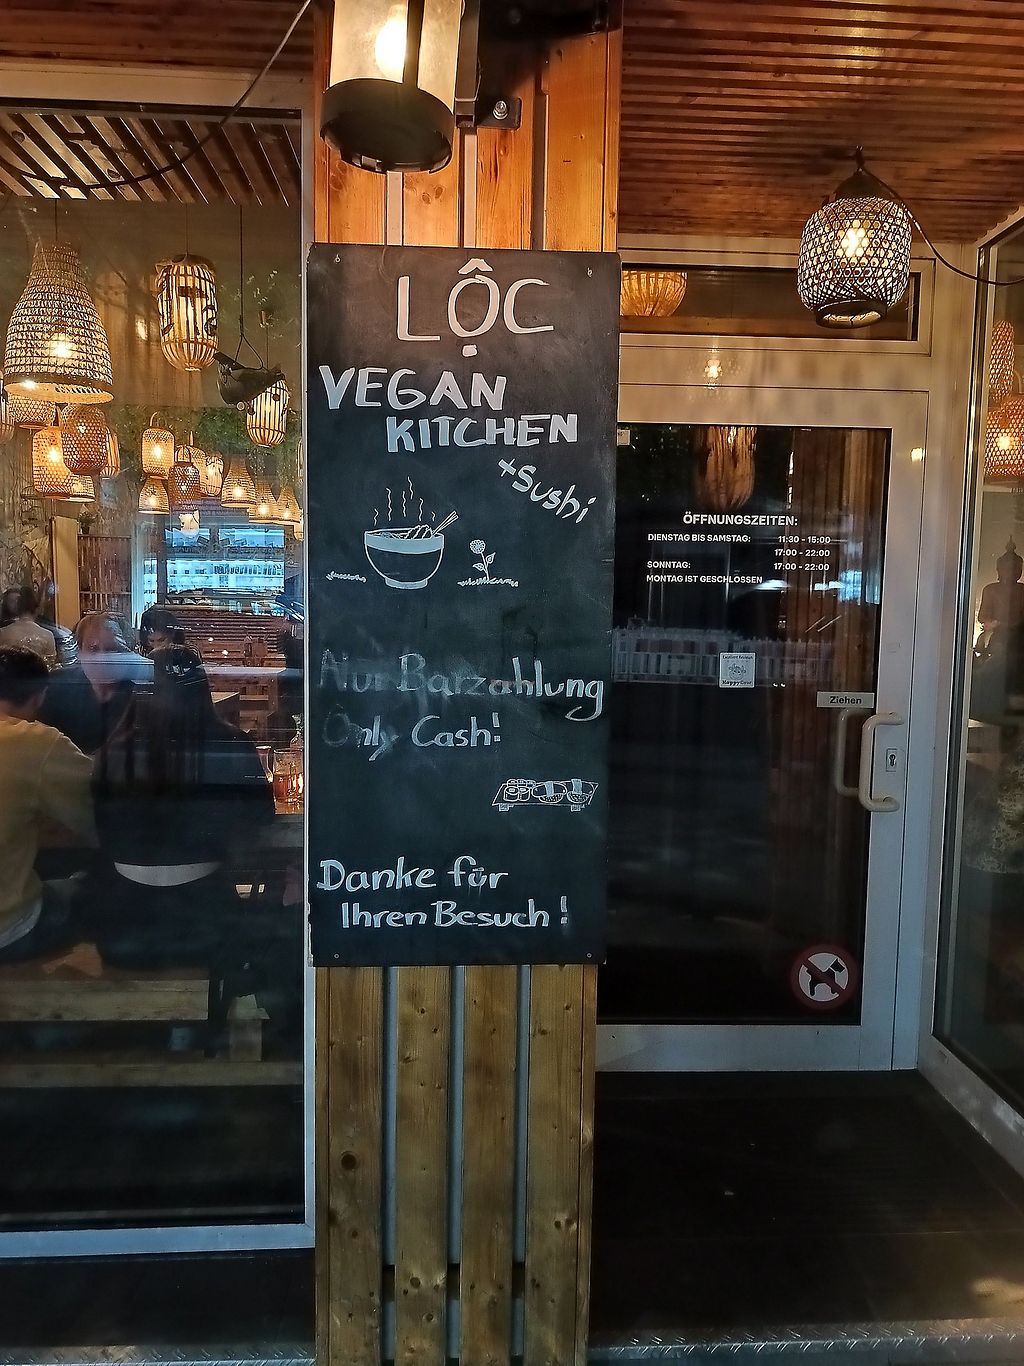 LỘC
VEGAN
KITCHEN
+Sushi
Nur Barzahlung
Only Cash!
Danke für
Ihren Besuch!
ÖFFNUNGSZEITEN:
DIENSTAG BIS SAMSTAG: 11:30 - 15:00
17:00 - 22:00
SONNTAG: 17:00 - 22:00
MONTAG IST GESCHLOSSEN
HappyCow
Ziehen